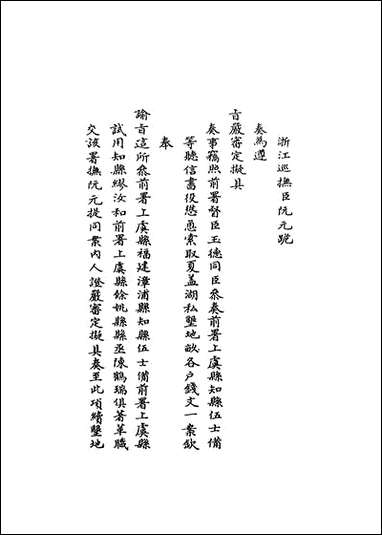 浙江巡撫臣阮元跪
奏為遵
旨嚴審定擬具
奏事竊照前署督臣玉德同臣叅奏前署上虞縣知縣伍士備
等聽信書役慫恿索取夏蓋湖私墾地畝各户錢文一案欽
奉
諭旨這所叅前署上虞縣福建漳浦縣知縣伍士備前署上虞縣
試用知縣繆汝和前署上虞縣餘姚縣縣丞陳鶴瑞俱著革職
交該署撫阮元提同案内人證嚴審定擬具奏至此項續墾地